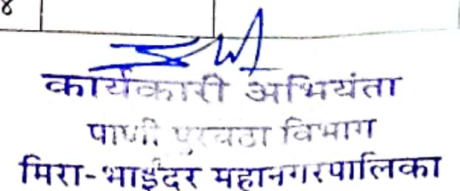 ४
कार्यकारी अभियंता
पाणी पुरवठा विभाग
मिरा-भाईंदर महानगरपालिका